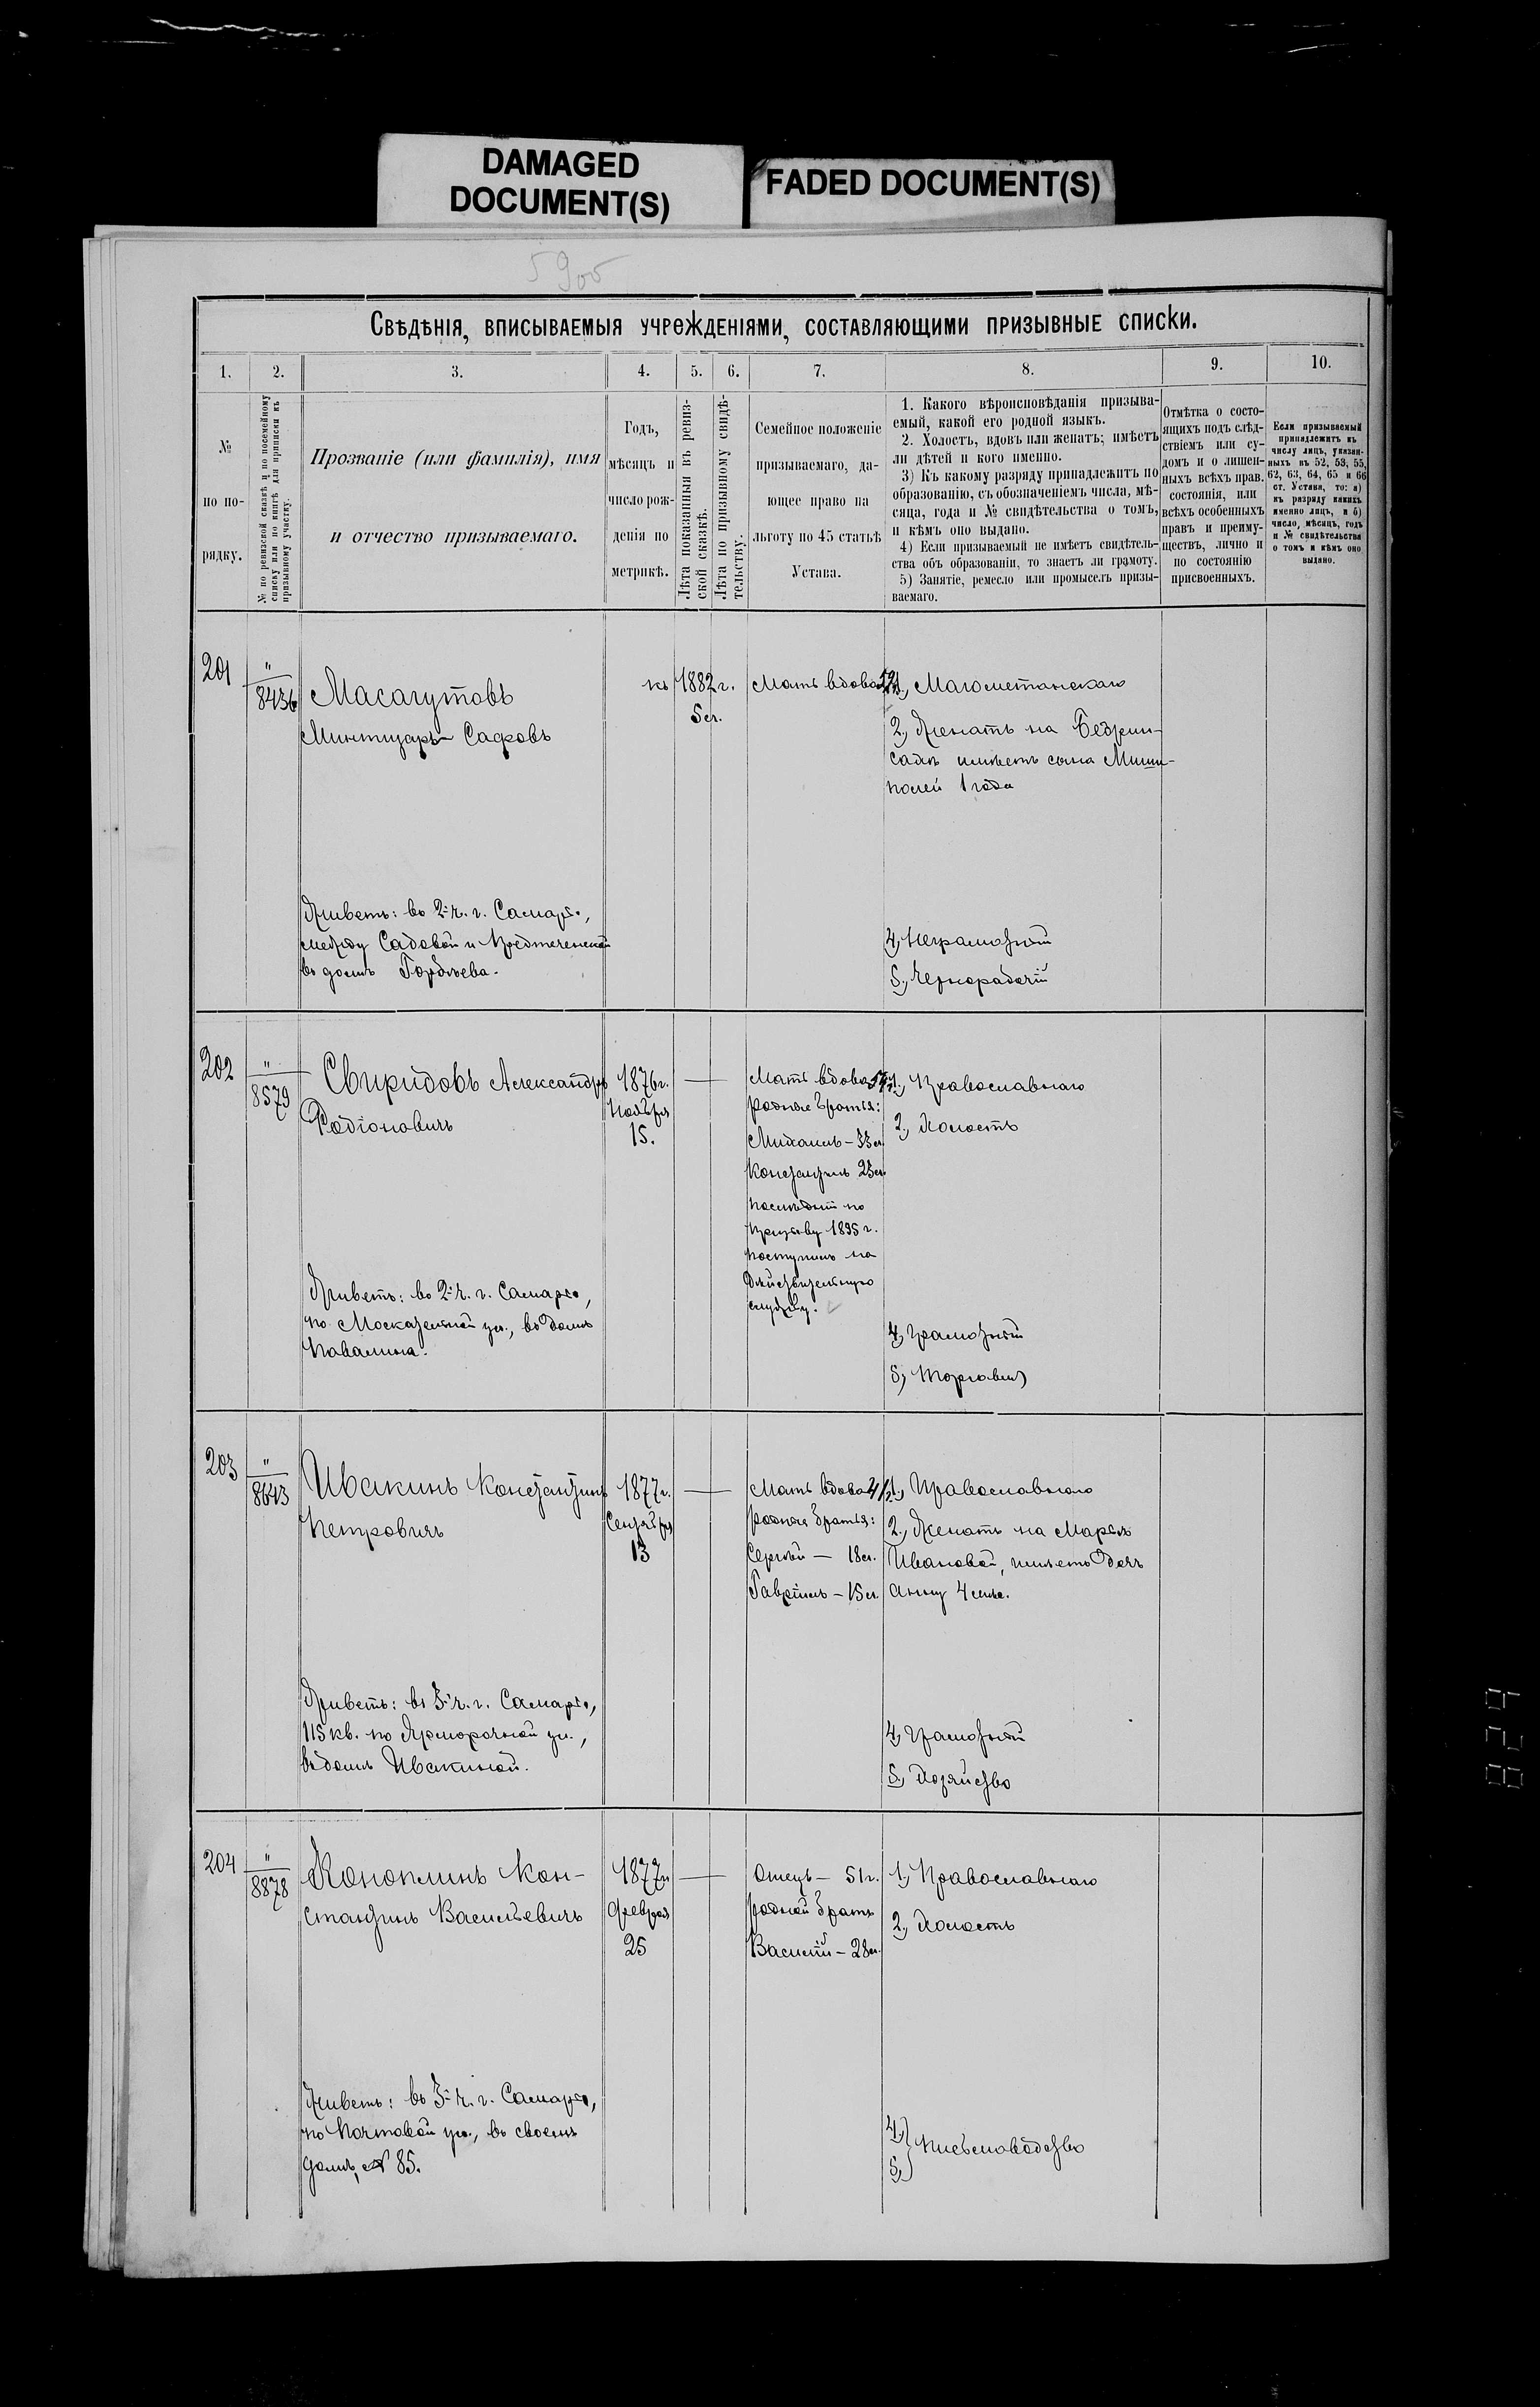 DAMAGED
DOCUMENT(S)
FADED DOCUMENT(S)
Свѣдѣнія, вписываемыя учрежденіями, составляющими призывные списки.
1. 2. 3. 4. 5. 6. 7. 8. 9. 10.
№
по по-
рядку.
№ по ревизской сказкѣ и по посемейному
списку или по книгѣ для приписки къ
призывному участку.
Прозваніе (или фамилія), имя
и отчество призываемаго.
Годъ,
мѣсяцъ и
число рож-
денія по
метрикѣ.
Лѣта показанныя въ ревиз-
ской сказкѣ.
Лѣта по призывному свидѣ-
тельству.
Семейное положеніе
призываемаго, да-
ющее право на
льготу по 45 статьѣ
Устава.
1. Какого вѣроисповѣданія призыва-
емый, какой его родной языкъ.
2. Холостъ, вдовъ или женатъ; имѣетъ
ли дѣтей и кого именно.
3) Къ какому разряду принадлежитъ по
образованію, съ обозначеніемъ числа, мѣ-
сяца, года и № свидѣтельства о томъ,
и кѣмъ оно выдано.
4) Если призываемый не имѣетъ свидѣтель-
ства объ образованіи, то знаетъ ли грамоту.
5) Занятіе, ремесло или промыселъ призы-
ваемаго.
Отмѣтка о состо-
ящихъ подъ слѣд-
ствіемъ или су-
домъ и о лишен-
ныхъ всѣхъ прав.
состоянія, или
всѣхъ особенныхъ
правъ и преиму-
ществъ, лично и
по состоянію
присвоенныхъ.
Если призываемый
принадлежитъ къ
числу лицъ, указан-
ныхъ въ 52, 53, 55,
62, 63, 64, 65 и 66
ст. Устава, то: а)
къ разряду какихъ
именно лицъ, и б)
число, мѣсяцъ, годъ
и № свидѣтельства
о томъ и кѣмъ оно
выдано.
201
"
8436
Масагутовъ
Сафовъ
къ 1882 г.
5 л.
Мать вдова
1., Магометанскаго
2, Женатъ на Бедрин-
имѣетъ сына
1 года
Живетъ: во 2-й ч. г. Самары,
между Садовой и Предтеченской
въ домѣ Гордѣева.
4, Неграмотный
5., Чернорабочій
202
"
8579
Свиридовъ Александръ
Родіоновичъ
1876 г.
Ноября
15.
Мать вдова
родные братья:
Михаилъ – 33 л.
Константинъ 23 л.
послѣдній по
призыву 1895 г.
поступилъ на
дѣйствительную
службу.
1., Православнаго
2., Холостъ
Живетъ: во 2-й ч. г. Самары,
по Москательной ул., въ домѣ
4, Грамотный
5, Торговля
203
"
8643
Ивакинъ Константинъ
Петровичъ
1877 г.
Сентября
13
Мать вдова
родные братья:
Сергѣй – 18 л.
Гавріилъ – 15 л.
1., Православнаго
2., Женатъ на Марьѣ
Ивановой, имѣетъ дочь
Анну 4 мѣс.
Живетъ: въ 3-й ч. г. Самары,
115 кв. по Ярморочной ул.,
въ домѣ Ивакиной.
4, Грамотный
5., Хозяйство
204
"
8878
Коноплинъ Кон-
стантинъ Васильевичъ
1877 г.
Февраля
25
Отецъ – 51 г.
родной братъ
Василій – 28 л.
1., Православнаго
2, Холостъ
Живетъ: въ 3-й ч. г. Самары,
по Почтовой ул., въ своемъ
домѣ, № 85.
4,
5,
Письмоводство
829